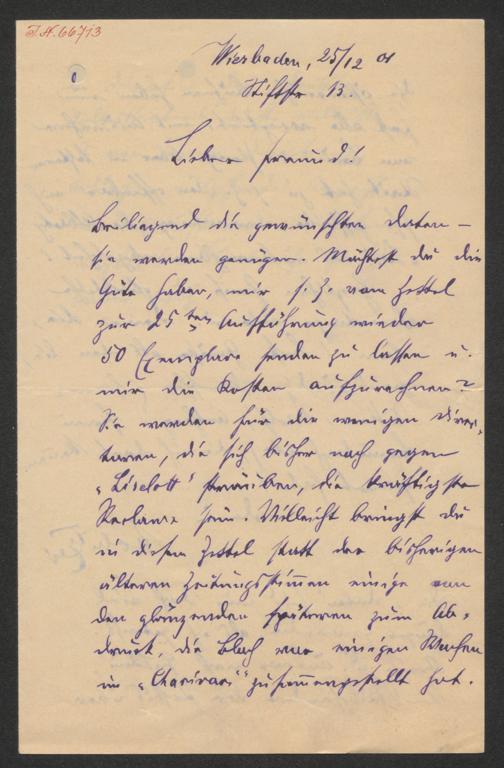 I.N. 66713
Wiesbaden, 25/12 01
Stiftstr 13
Lieber Freund!
Beiliegend die gewünschten Daten –
sie werden genügen. Möchtest du die
Güte haben, mir s. Z. vom Zettel
zur 25ten Aufführung wieder
50 Exemplare senden zu lassen u.
mir die Kosten aufzurechnen?
Sie werden für die wenigen Direk-
toren, die sich bisher noch gegen
„Liselott" sträuben, die kräftigste
Reclame sein. Vielleicht bringst du
in diesem Zettel statt der bisherigen
älteren Zeitungsstimmen einige von
den glänzenden späteren zum Ab-
druck, die Bloch vor einigen Wochen
im „Charivari" zusammengestellt hat.